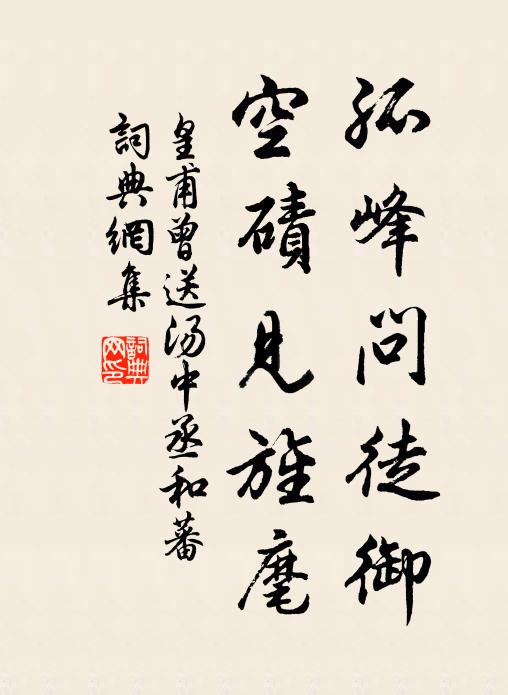 孤峰問徒御
空磧見旌麾
皇甫曾送汤中丞和蕃
詞典網集
詞典網印